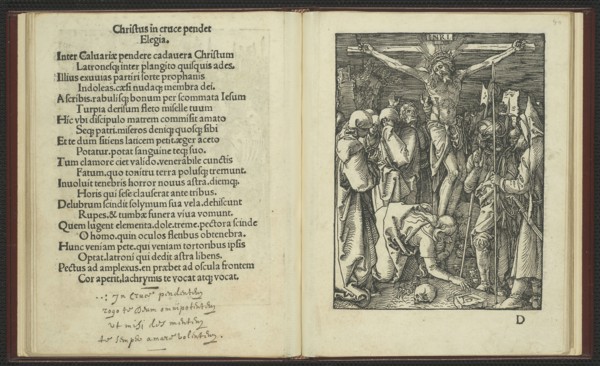 Christus in cruce pendet
Elegia.
Inter Caluariæ pendere cadauera Christum
Latronesq; inter plangito quisquis ades.
Illius exuuias partiri sorte prophanis
Indoleas. cæsi nudaq; membra dei.
Ascribis. rabulisq; bonum per scommata Iesum
Turpia derisum fleto miselle tuum
Hic vbi discipulo matrem commisit amato
Seq; patri. miseros deniq; quosq; sibi
Et te dum sitiens laticem petit. æger aceto
Potatur. potat sanguine teq; suo.
Tum clamore ciet valido. venerabile cunctis
Fatum. quo tonitru terra polusq; tremunt.
Inuoluit tenebris horror nouus astra. diemq;
Horis qui sese clauserat ante tribus.
Delubrum scindit solymum sua vela. dehiscunt
Rupes. & tumbæ funera viua vomunt.
Quem lugent elementa. dole. treme. pectora scinde
O homo. quin oculos fletibus obtenebra.
Hunc veniam pete. qui veniam tortoribus ipsis
Optat. latroni qui dedit astra libens.
Pectus ad amplexus. en præbet ad oscula frontem
Cor aperit. lachrymis te vocat atq; vocat.
In Cruce pendentem
rogo te Deum omnipotentem
ut mihi des mentem
te semper amare volentem.
INRI
D